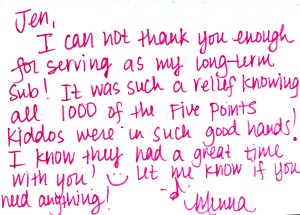 Jen,
I can not thank you enough
for serving as my long-term
sub! It was such a relief knowing
all 1000 of the Five Points
kiddos were in such good hands!
I know they had a great time
with you! Let me know if you
need anything!